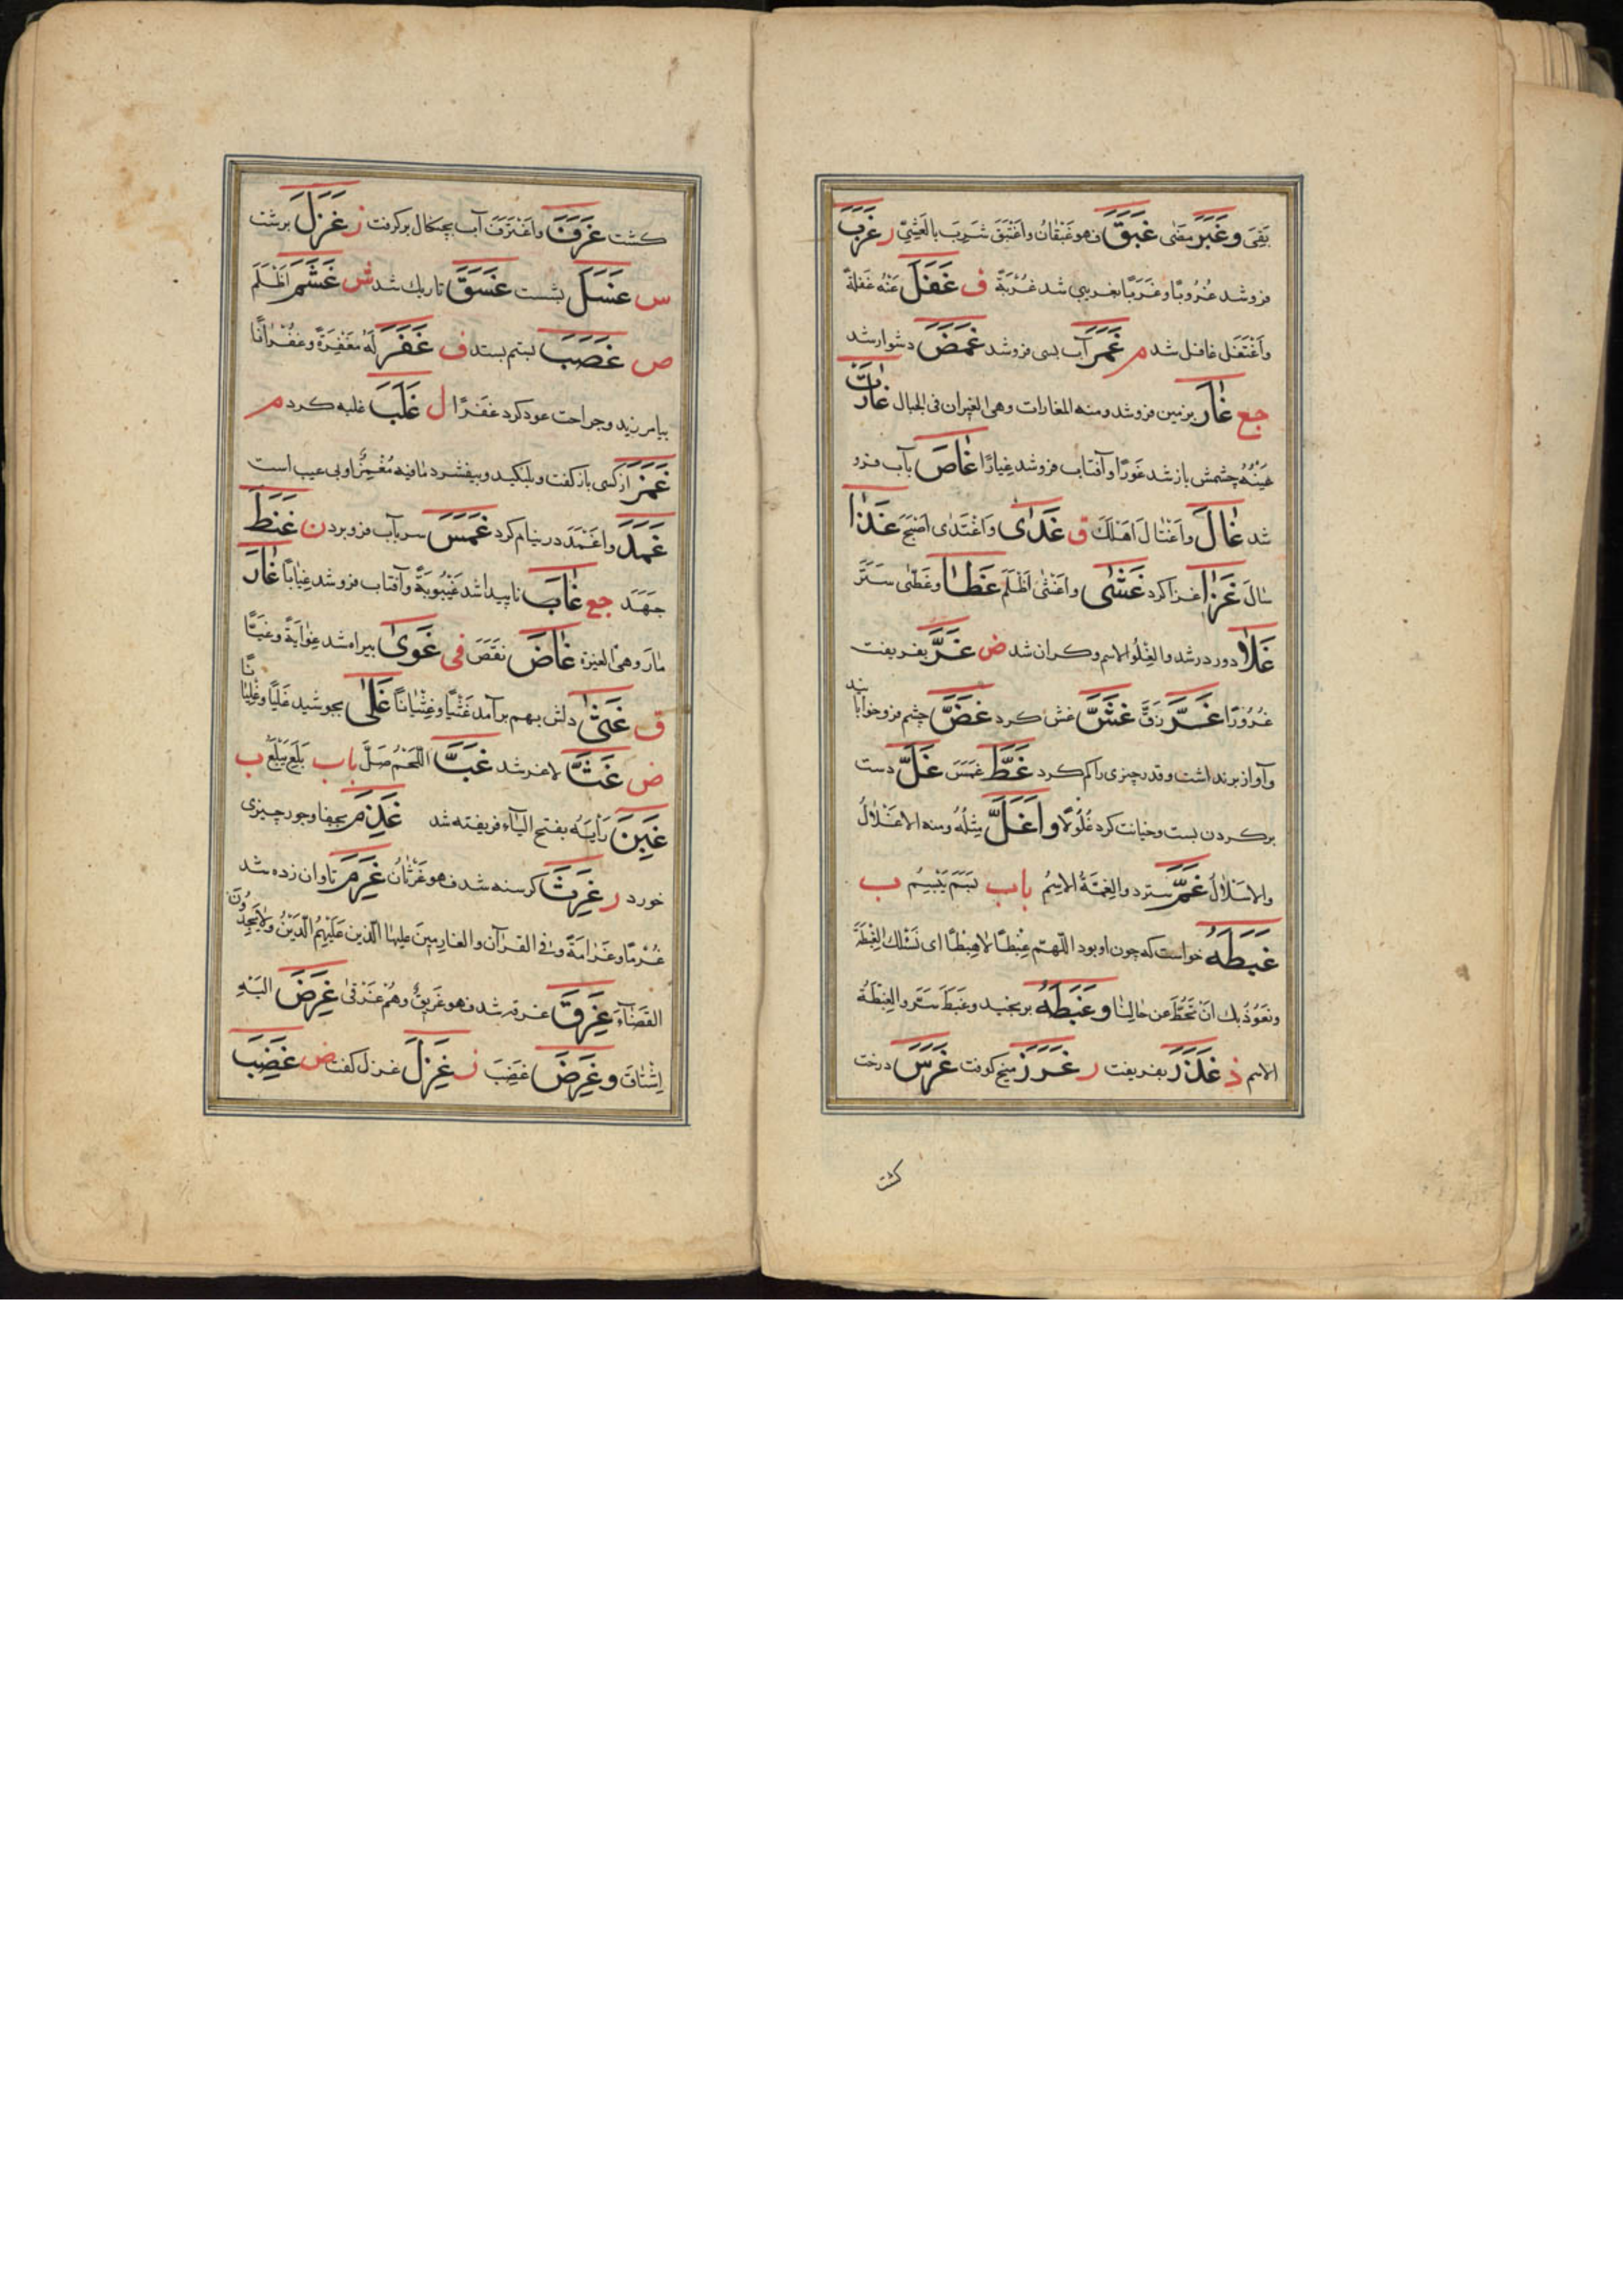 بَقِیَ وغَبَرَ مَضٰی غَبَقَ فهو غَبْقَانُ واغْتَبَقَ شَرِبَ بالعَشِیِّ ر غَرَبَ
فروشد غُرُوبًا وغَرَبًا بغریبی شد غُرْبَةً ف غَفَلَ عَنْهُ غَفلةً
واَغْتَفَل غافل شد م غَمَرَ آب بسی فروشد غَمَضَ دشوار شد
جع غٰارَ بزمین فروشد ومنه المغارات وهی الغیران فی الجبال غٰارَتْ
عَیْنُهُ چشمش باز شد غَورًا وآفتاب فروشد غِیارًا غٰاصَ بآب فرو
شد غٰالَ واَغْتٰالَ اَهْلَكَ ق غَدٰی واَغْتَدٰی اَصْبَحَ غَذٰا
سٰالَ غَزٰا غزا کرد غَشٰی واغْشٰی اَظْلَمَ غَطٰا وغَطّٰی سَتَرَ
غَلٰا دور در شد والغُلُو الاسم وکران شد ض غَرَّ بفریفت
غُرُورًا غَرَّ زَقَّ غَشَّ غش کرد غَضَّ چشم فروخوابانید
وآواز برنداشت وقدر چیزی را کم کرد غَطَّ غمَسَ غَلَّ دست
برکردن بست وخیانت کرد غُلُولًا واَغَلَّ مِثْلُهُ ومنه الاغْلٰالُ
والاسْلٰالُ غَمَّ سترد والغُمَّةُ الاسمُ باب بَسَمَ یَبْسِمُ ب
غَبَطَهُ خواست که چون او بود اللّهمّ غِبْطًا لاهبْطًا ای نَسْئَلك الغِبْطَةَ
ونَعُوذُ بك اَنْ نَحُطَّ عن حٰالِنٰا وغَبَطَهُ برمجید وغَبَطَ سَتَرَ والغِبْطَةُ
الاسم ذ غَدَرَ بفریفت ر غَرَزَ میخ کوفت غَرَسَ درخت
کشت
کشت غَرَفَ واَغْتَرَفَ آب بچنکال برکرفت ز غَزَلَ برشت
س غَسَلَ بشست غَسَقَ تاریك شد ش غَشَمَ ظَلَمَ
ص غَصَبَ بستم بستد ف غَفَرَ لَهُ مَغْفِرَةً وغُفْرٰانًا
بیامرزید وجراحت عود کرد غفْرًا ل غَلَبَ غلبه کرد م
غَمَزَ از کسی باز کفت وبلنکید وبیفشرد مٰا فیه مُغْمِزٌ او بی عیب است
غَمَدَ واغْمَدَ در نیام کرد غَمَسَ سر بآب فروبرد ن غَنَطَ
جَهَدَ جع غٰابَ ناپیدا شد غَیْبُوبَةً وآفتاب فروشد غِیٰابًا غٰارَ
مٰارَ وهی الغیرَة غٰاضَ نَقَصَ فی غَوٰی بیراه شد غوٰایَةً وغَیًّا
ق غَثٰی دلش بهم برآمد غَثْیًا وغثیٰانًا غَلٰی بجوشید غَلْیًا وغَلَیٰانًا
ض غَثَّ لاغر شد غَبَّ اللَّحْمُ صَلَّ باب بَلَعَ یَبْلَعُ ب
غَبِنَ رَأیَهُ بفتح الیٰآء فریفته شد غَذِمَ بجفا وجور چیزی
خورد ر غَرِثَ کرسنه شد فهو غَرْثٰانُ غَرِمَ تاوان زده شد
غُرْمًا وغَرٰامَةً وفی القرآن والغٰارِمینَ علیها الّذین عَلَیْهِمُ الدَّیْنُ ولٰا یَجِدُونَ
القَضٰآءَ غَرِقَ غرقه شد فهو غَرِیقٌ وهُمْ غَرْقٰی غَرِضَ اِلَیْهِ
اِشْتٰاقَ وغَرِضَ غَضِبَ ز غَزِلَ غزل کفت ض غَضِبَ